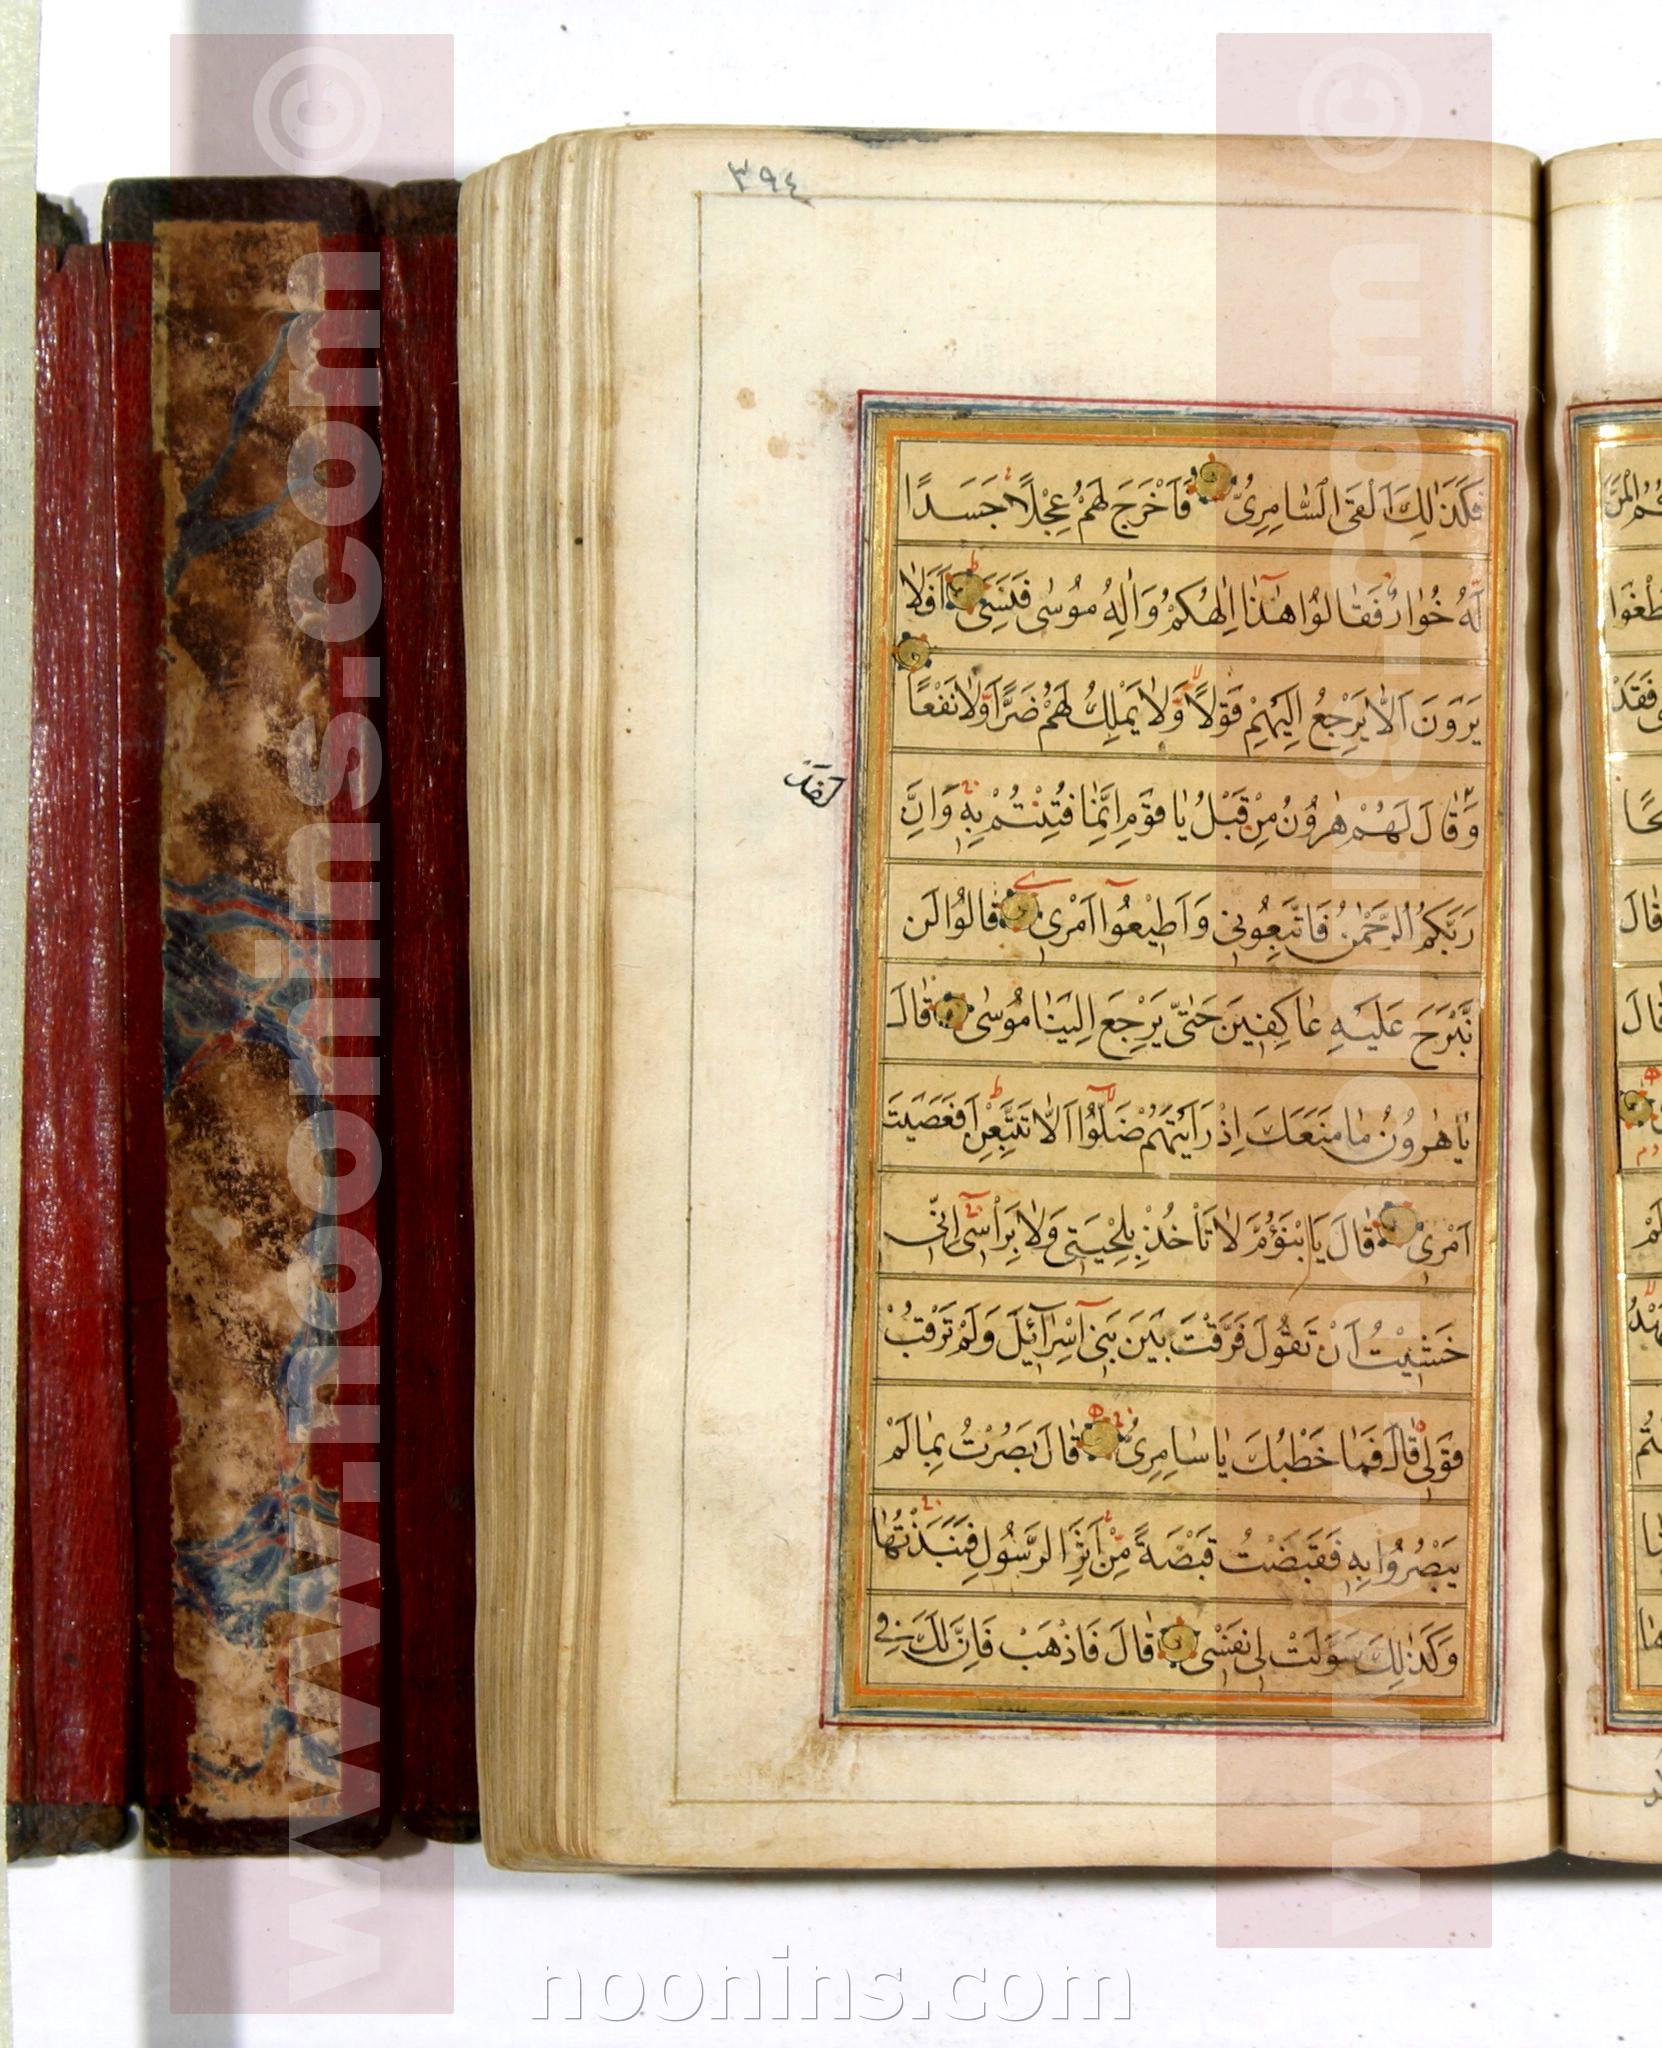 ٣٩٤
فَكَذٰلِكَ اَلْقَى السَّامِرِىُّ فَاَخْرَجَ لَهُمْ عِجْلًا جَسَدًا
لَهُ خُوَارٌ فَقَالُوا هٰذَا اِلٰهُكُمْ وَاِلٰهُ مُوسٰى فَنَسِىَ اَفَلَا
يَرَوْنَ اَلَّا يَرْجِعُ اِلَيْهِمْ قَوْلًا وَلَا يَمْلِكُ لَهُمْ ضَرًّا وَلَا نَفْعًا
وَقَالَ لَهُمْ هٰرُونُ مِنْ قَبْلُ يَا قَوْمِ اِنَّمَا فُتِنْتُمْ بِهِ وَاِنَّ
لقد
رَبَّكُمُ الرَّحْمٰنُ فَاتَّبِعُونِى وَاَطِيعُوا اَمْرِى قَالُوا لَنْ
نَبْرَحَ عَلَيْهِ عَاكِفِينَ حَتّٰى يَرْجِعَ اِلَيْنَا مُوسٰى قَالَ
يَا هٰرُونُ مَا مَنَعَكَ اِذْ رَاَيْتَهُمْ ضَلُّوا اَلَّا تَتَّبِعَنِ اَفَعَصَيْتَ
اَمْرِى قَالَ يَا بْنَؤُمَّ لَا تَاْخُذْ بِلِحْيَتِى وَلَا بِرَاْسِى اِنِّى
خَشِيتُ اَنْ تَقُولَ فَرَّقْتَ بَيْنَ بَنِى اِسْرَائِيلَ وَلَمْ تَرْقُبْ
قَوْلِى قَالَ فَمَا خَطْبُكَ يَا سَامِرِىُّ قَالَ بَصُرْتُ بِمَا لَمْ
يَبْصُرُوا بِهِ فَقَبَضْتُ قَبْضَةً مِنْ اَثَرِ الرَّسُولِ فَنَبَذْتُهَا
وَكَذٰلِكَ سَوَّلَتْ لِى نَفْسِى قَالَ فَاذْهَبْ فَاِنَّ لَكَ فِى
www.noonins.com ©
www.noonins.com ©
noonins.com